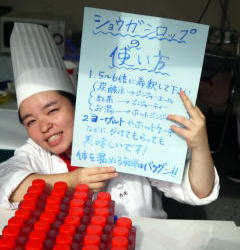 ショウガシロップ
の
使い方
1. 5~6倍に希釈して下さい
炭酸水→ジンジャーエール
紅茶→ジンジャーティー
お湯→ホットジンジャー
2 ヨーグルトやホットケーキ
などにかけてもらっても
美味しいです!
体を温める効果はバツグン!!